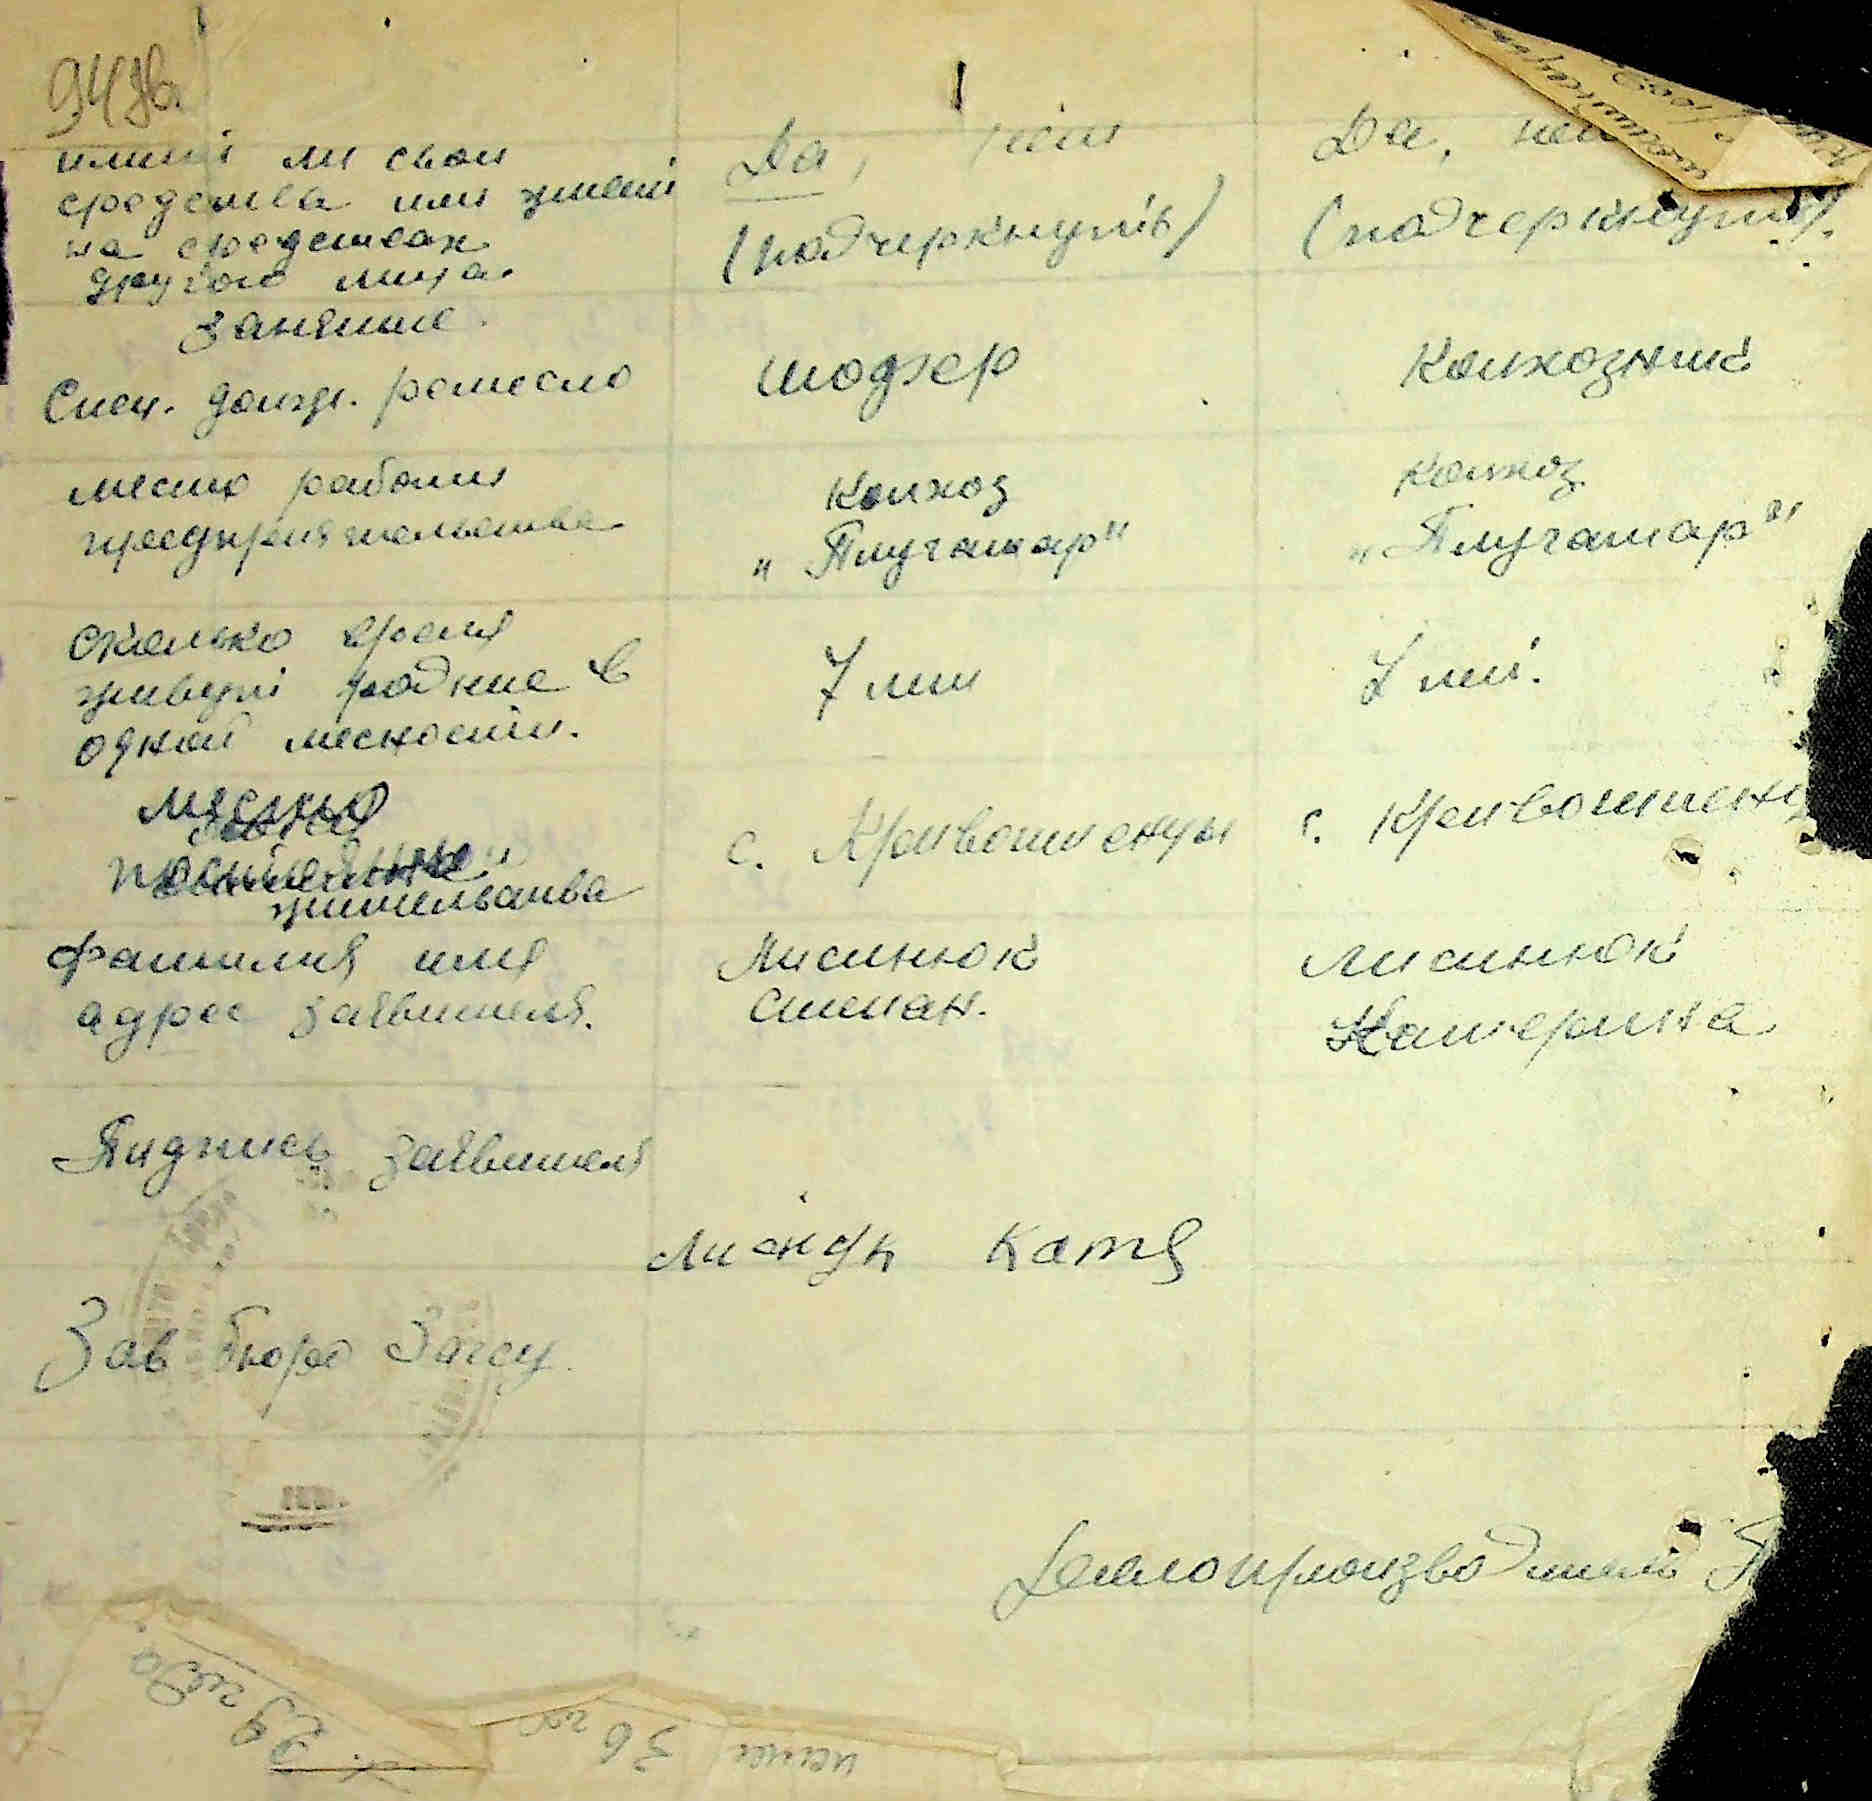 94 зв.
имеют ли свои
средства или живет
на средствах
другого лица.
Занятие.
Да, нет
(подчеркнуть)
Да,
(подчеркнуть).
Спец. должн. ремесло
шофер
Колхозник
место работы
предприятельства
Колхоз
"Плугатар"
Колхоз
"Плугатар"
Сколько время
живут родние в
одной месности.
7 лет
7 лет.
Место
жительства
с. Кривошиенцы
с. Кривошиенц
Фамилия имя
адрес заявителя.
Лисинюк
Степан.
Лисинюк
Катерина
Пидпись заявителя
Лисинюк Катя
Зав бюро Загсу
Делопроизводитель
29 года
36 год